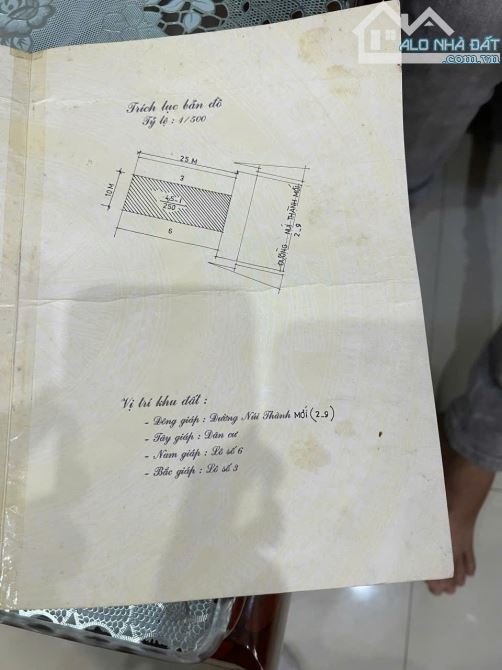 ALO NHÀ ĐẤT
.com.vn
Trích lục bản đồ
Tỷ lệ : 1/500
25 M
3
10 M
45-1
250
6
ĐƯỜNG NÚI THÀNH MỚI
2_9
Vị trí khu đất :
- Đông giáp : Đường Núi Thành MỚI (2_9)
- Tây giáp : Dân cư
- Nam giáp : Lô số 6
- Bắc giáp : Lô số 3